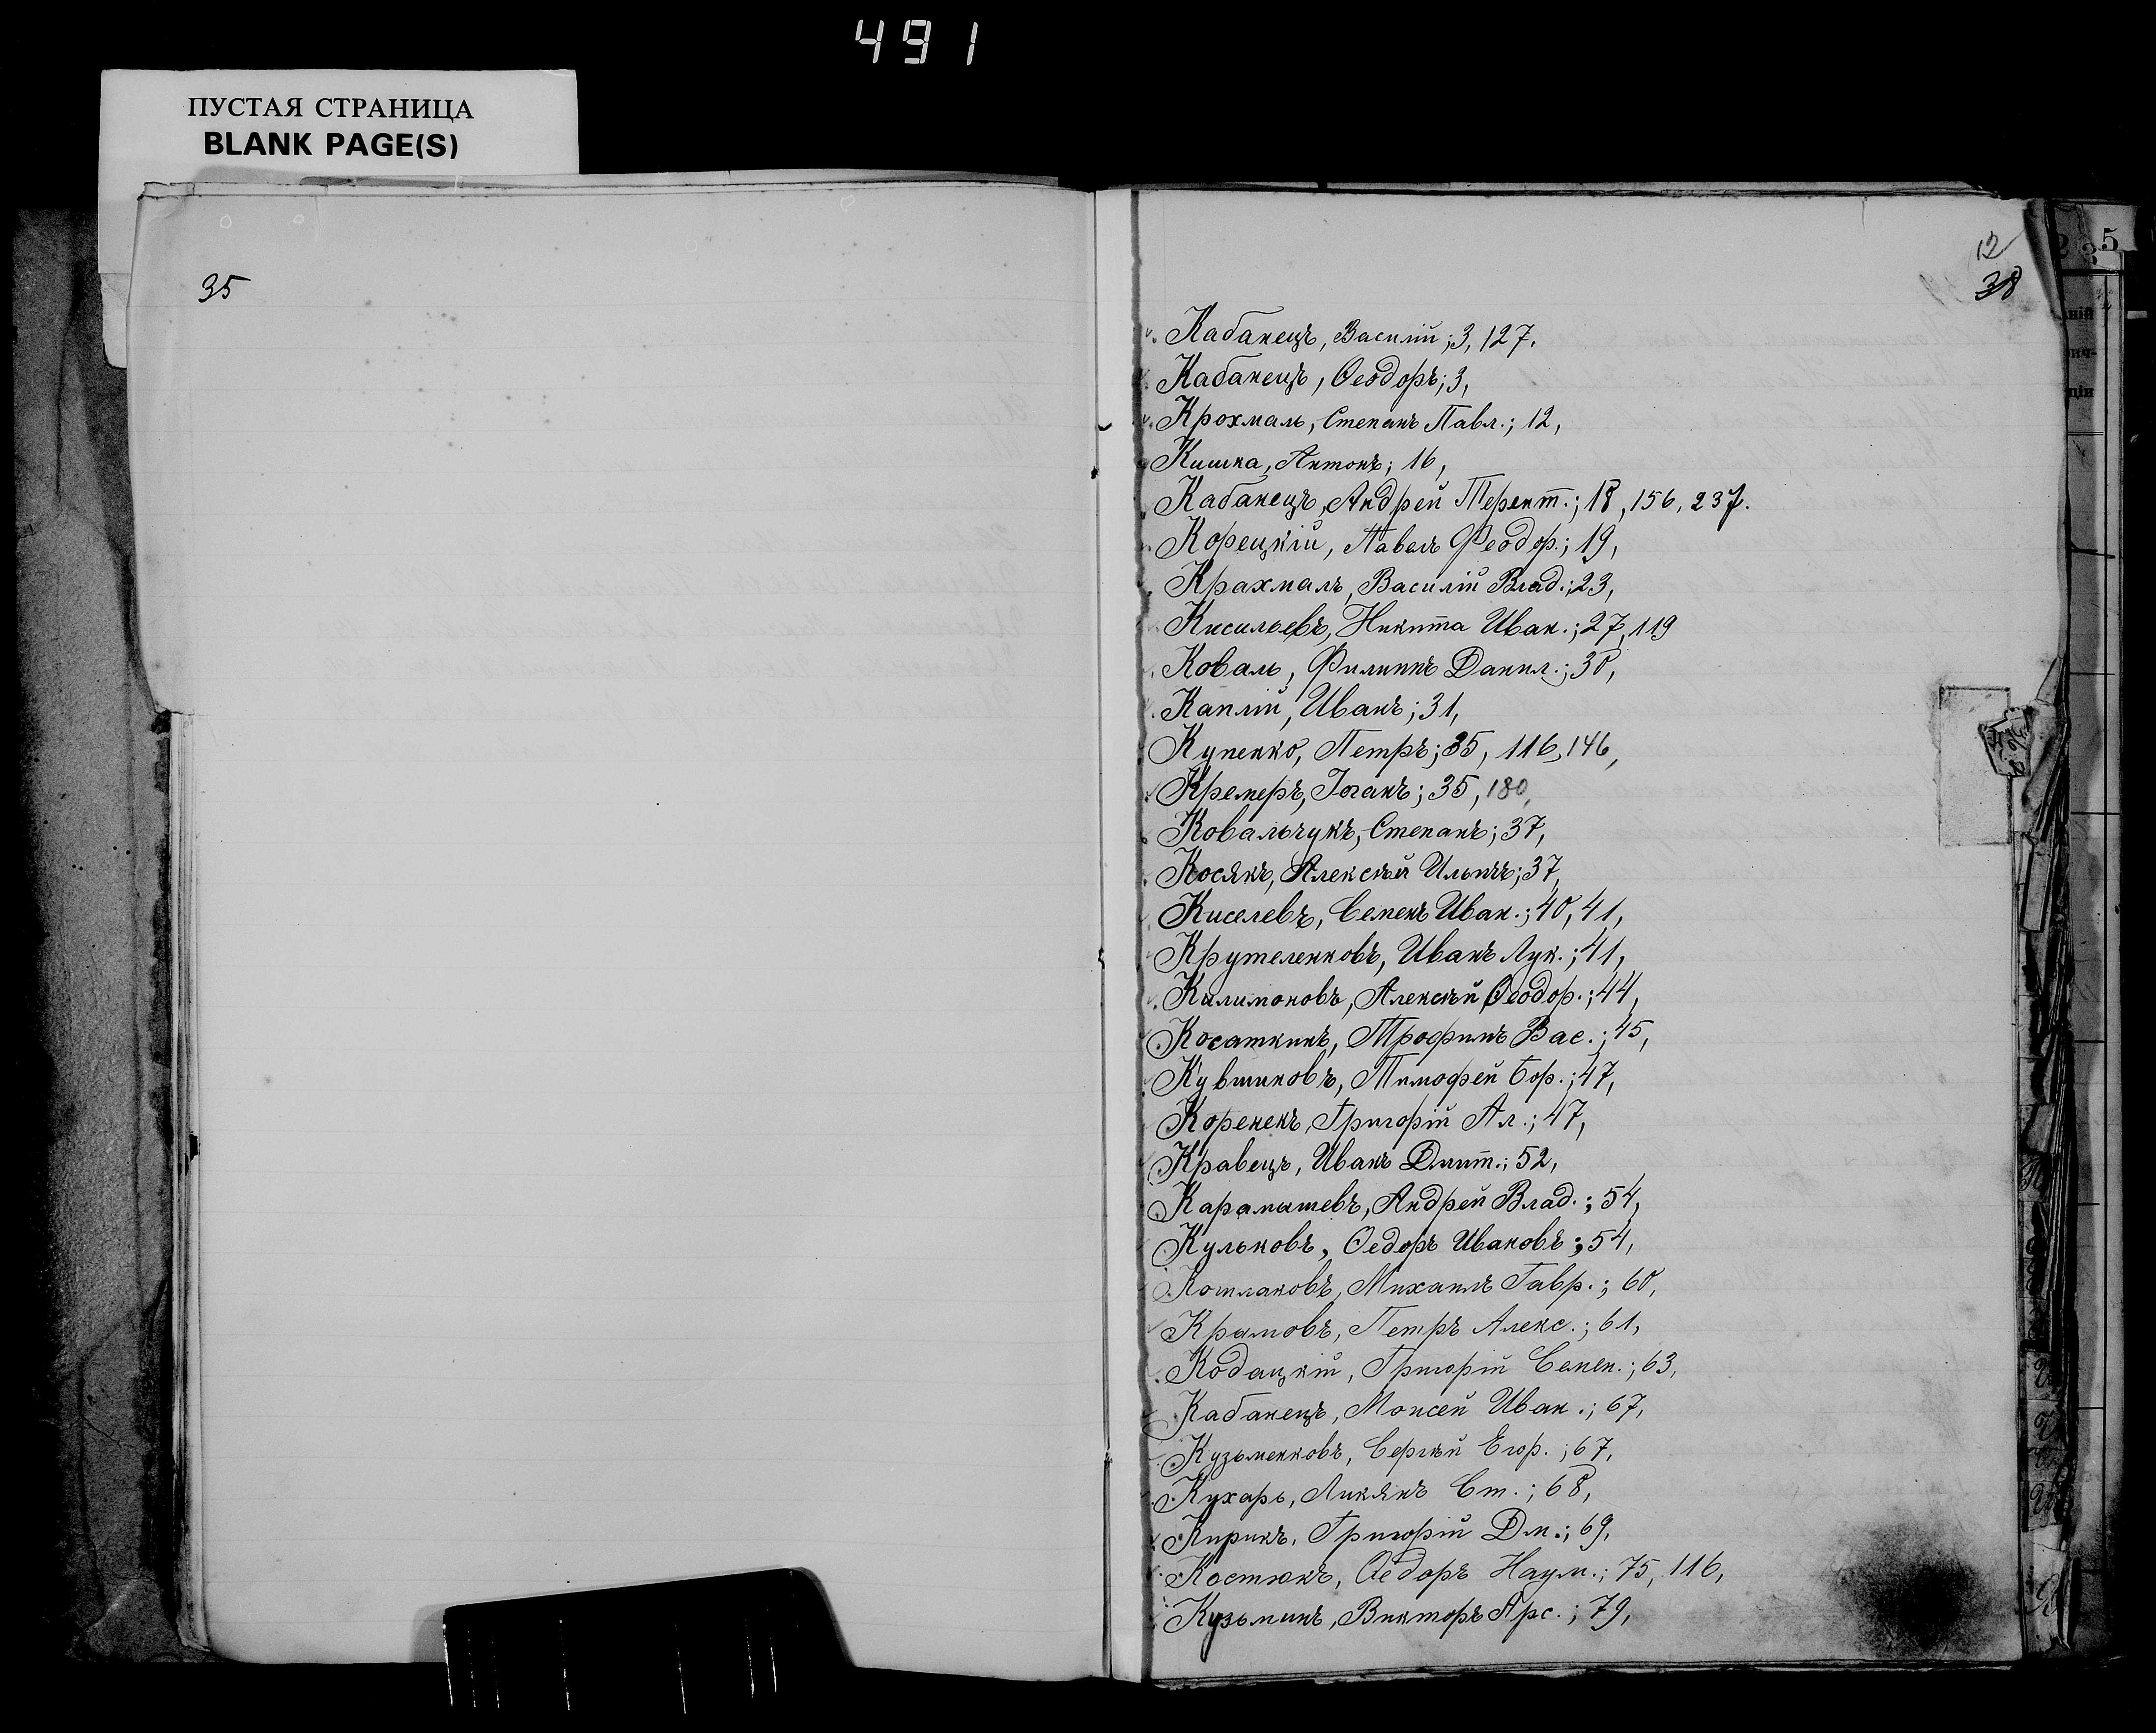 491
ПУСТАЯ СТРАНИЦА
BLANK PAGE(S)
35
12
38
Кабанецъ, Василій; 3, 127.
Кабанецъ, Ѳеодоръ; 3,
Крохмаль, Степанъ Павл.; 12,
Кишка, Антонъ; 16,
Кабанецъ, Андрей Терент.; 18, 156, 237.
Корецкій, Павелъ Феодор.; 19,
Крахмалъ, Василій Влад.; 23,
Кисильевъ, Никита Иван.; 27, 119
Коваль, Филиппъ Данил.; 30,
Каплій, Иванъ; 31,
Купенко, Петръ; 35, 116, 146,
Кремеръ, Іоганъ; 35, 180,
Ковальчукъ, Степанъ; 37,
Косякъ, Алексѣй Ильичъ; 37,
Киселевъ, Семенъ Иван.; 40, 41,
Крутеленковъ, Иванъ Лук.; 41,
Калимоновъ, Алексѣй Ѳеодор.; 44,
Косаткинъ, Трофимъ Вас.; 45,
Кувшиновъ, Тимофей Бор.; 47,
Коренекъ, Григорій Ал.; 47,
Кравецъ, Иванъ Дмит.; 52,
Карамышевъ, Андрей Влад.; 54,
Кульковъ, Ѳедоръ Ивановъ; 54,
Кошлаковъ, Михаилъ Гавр.; 60,
Крымовъ, Петръ Алекс.; 61,
Кодацкій, Григорій Семен.; 63,
Кабанецъ, Моисей Иван.; 67,
Кузьменковъ, Сергѣй Егор.; 67,
Кухарь, Ликянъ Ст.; 68,
Кирикъ, Григорій Дм.; 69,
Костюкъ, Ѳедоръ Наум.; 75, 116,
Кузьминъ, Викторъ Арс.; 79,